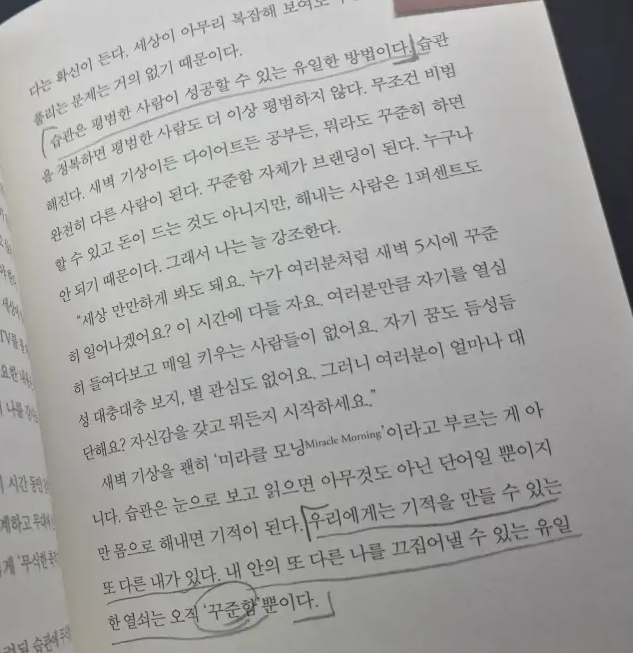 다는 확신이 든다. 세상이 아무리 복잡해 보여도
풀리는 문제는 거의 없기 때문이다.
습관은 평범한 사람이 성공할 수 있는 유일한 방법이다. 습관
을 정복하면 평범한 사람도 더 이상 평범하지 않다. 무조건 비범
해진다. 새벽 기상이든 다이어트든 공부든, 뭐라도 꾸준히 하면
완전히 다른 사람이 된다. 꾸준함 자체가 브랜딩이 된다. 누구나
할 수 있고 돈이 드는 것도 아니지만, 해내는 사람은 1퍼센트도
안 되기 때문이다. 그래서 나는 늘 강조한다.
“세상 만만하게 봐도 돼요. 누가 여러분처럼 새벽 5시에 꾸준
히 일어나겠어요? 이 시간에 다들 자요. 여러분만큼 자기를 열심
히 들여다보고 매일 키우는 사람들이 없어요. 자기 꿈도 듬성듬
성 대충대충 보지, 별 관심도 없어요. 그러니 여러분이 얼마나 대
단해요? 자신감을 갖고 뭐든지 시작하세요.”
새벽 기상을 괜히 ‘미라클 모닝Miracle Morning’이라고 부르는 게 아
니다. 습관은 눈으로 보고 읽으면 아무것도 아닌 단어일 뿐이지
만 몸으로 해내면 기적이 된다. 우리에게는 기적을 만들 수 있는
또 다른 내가 있다. 내 안의 또 다른 나를 끄집어낼 수 있는 유일
한 열쇠는 오직 ‘꾸준함’뿐이다.